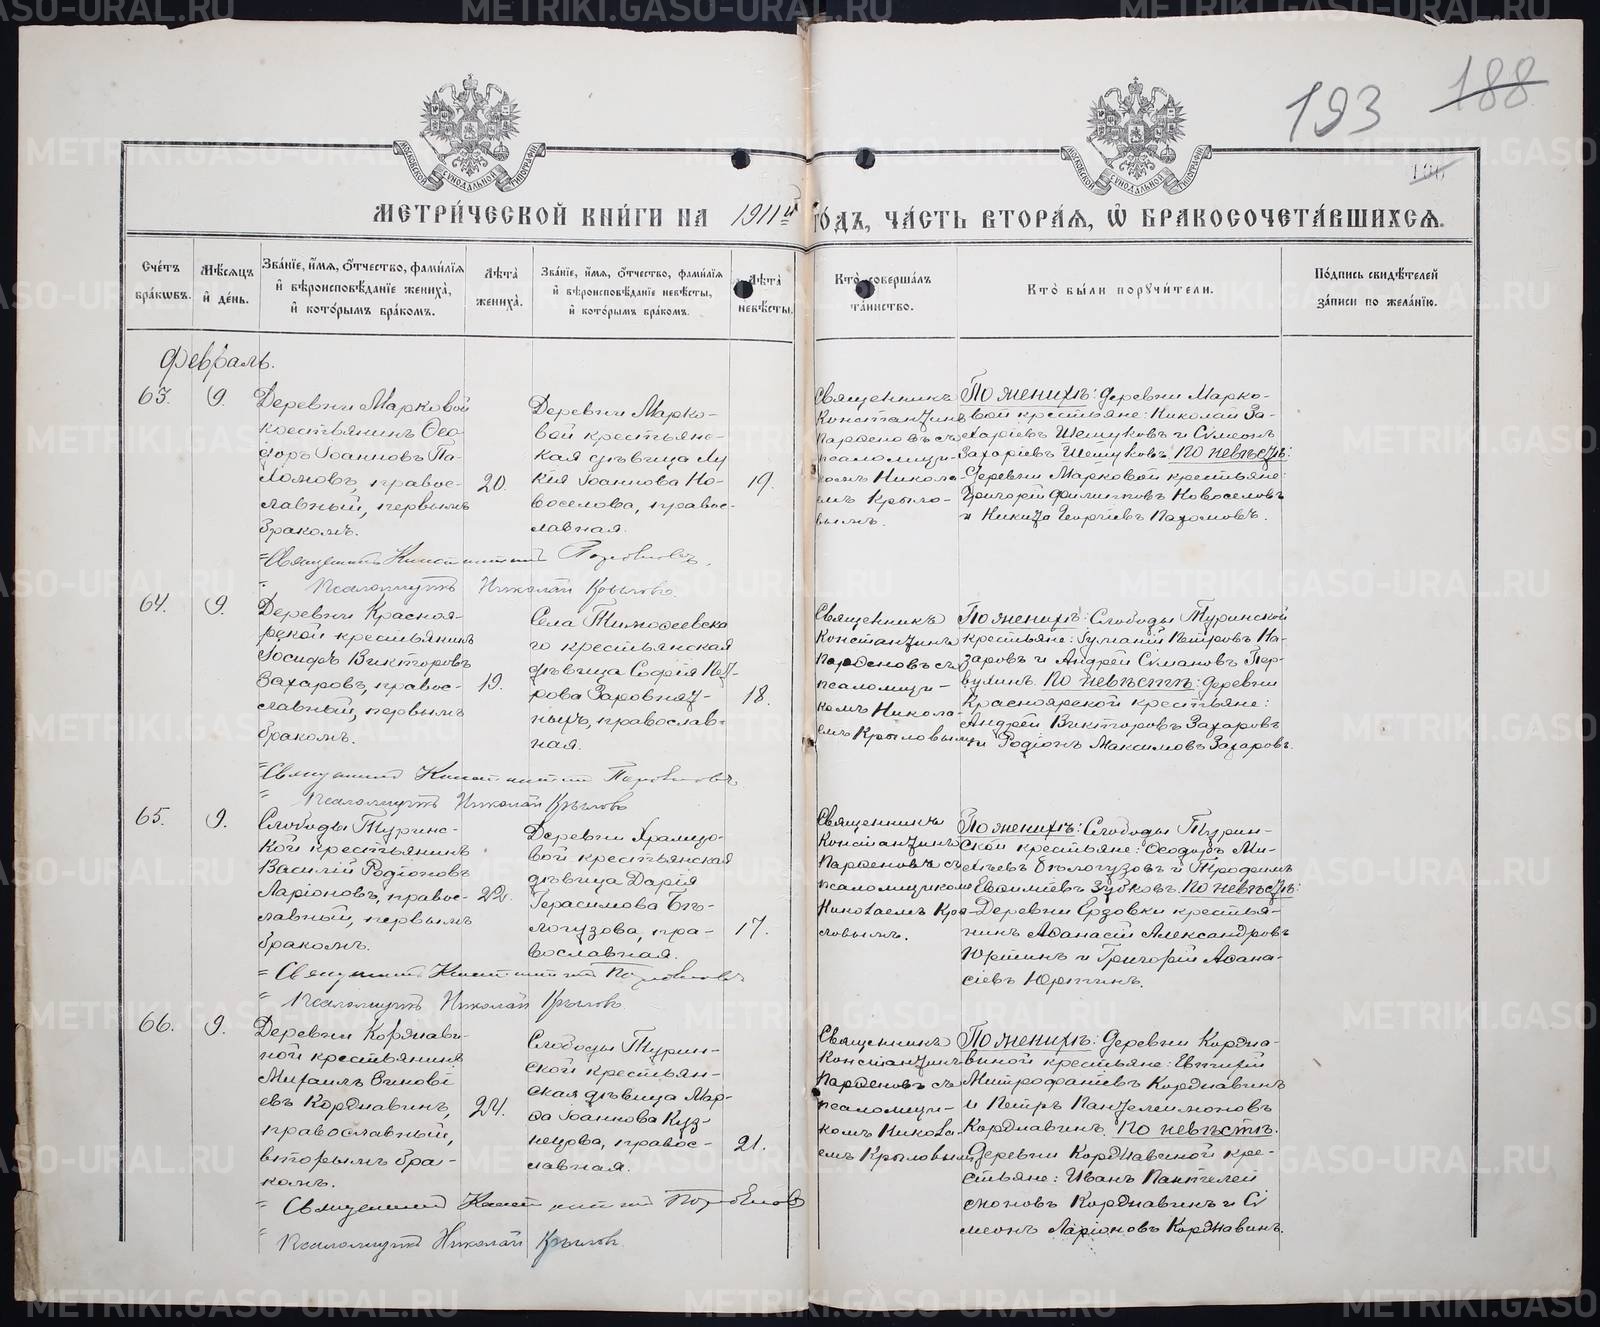 193 188
МЕТРИ́ЧЕСКОЙ КНИ́ГИ НА 1911й ГО́ДЪ, ЧА́СТЬ ВТОРА́Я, Ѽ БРАКОСОЧЕТА́ВШИХСЯ.
Сче́тъ бра́кѡвъ.
Мѣ́сяцъ и де́нь.
Зва́нїе, и́мя, ѻ́тчество, фами́лїя
и вѣроисповѣ́данїе жениха̀,
и кото́рымъ бра́комъ.
Лѣта̀ жениха̀.
Зва́нїе, и́мя, ѻ́тчество, фами́лїя
и вѣроисповѣ́данїе невѣ́сты,
и кото́рымъ бра́комъ.
Лѣта̀ невѣ́сты.
Кто̀ соверша́лъ
та́инство.
Кто̀ бы́ли поручи́тели.
По́дпись свидѣ́телей
за́писи по жела́нїю.
Февраль.
63.
9.
Деревни Марковой
крестьянинъ Ѳео-
доръ Іоанновъ Па-
хомовъ, правос-
лавный, первымъ
бракомъ.
20.
Деревни Марко-
вой крестьянс-
кая дѣвица Лу
кія Іоаннова Но-
воселова, правос-
лавная.
19.
Священникъ
Константинъ
Парѳеновъ съ
псаломщи-
комъ Никола-
емъ Крыло-
вымъ.
По женихѣ: деревни Марко-
вой крестьяне: Николай За-
харіевъ Шешуковъ и Сѵмеонъ
Захаріевъ Шешуковъ. По невѣстѣ:
Деревни Марковой крестьяне:
Григорій Филипповъ Новоселовъ
и Никита Георгіевъ Пахомовъ.
Священникъ Константинъ Парѳеновъ.
Псаломщикъ Николай Крыловъ.
64.
9.
Деревни Краснояр-
рской крестьянинъ
Іосифъ Викторовъ
Захаровъ, правос-
лавный, первымъ
бракомъ.
19.
Села Тимоѳеевска
го крестьянская
дѣвица Софія Пет-
рова Заровнят-
ныхъ, православ-
ная.
18.
Священникъ
Константинъ
Парѳеновъ съ
псаломщи-
комъ Никола-
емъ Крыловымъ
По женихѣ: Слободы Туринской
крестьяне: Іулианій Петровъ На-
заровъ и Андрей Симановъ Пер-
вухинъ. По невѣстѣ: деревни
Красноярской крестьяне:
Андрей Викторовъ Захаровъ
и Родіонъ Максимовъ Захаровъ.
Священникъ Константинъ Парѳеновъ
Псаломщикъ Николай Крыловъ
65.
9.
Слободы Туринс-
кой крестьянинъ
Василій Родіоновъ
Ларіоновъ, правос-
лавный, первымъ
бракомъ.
22.
Деревни Храмцо-
вой крестьянская
дѣвица Дарія
Герасимова Бѣ-
логузова, пра-
вославная.
17.
Священникъ
Константинъ
Парѳеновъ съ
псаломщикомъ
Николаемъ Кры-
ловымъ.
По женихѣ: Слободы Турин-
ской крестьяне: Ѳеодоръ Ми-
хѣевъ Бѣлогузовъ и Трофимъ
Евѳиміевъ Зубковъ. По невѣстѣ:
Деревни Ерзовки крестья-
нинъ Аѳанасій Александровъ
Юртинъ и Григорій Аѳана-
сіевъ Юртинъ.
Священникъ Константинъ Парѳеновъ
Псаломщикъ Николай Крыловъ.
66.
9.
Деревни Коржави-
ной крестьянинъ
Михаилъ Зинові
евъ Коржавинъ,
православный,
вторымъ бра-
комъ.
24.
Слободы Турин-
ской крестьян-
ская дѣвица Мар-
ѳа Іоаннова Куз-
нецова, правос-
лавная.
21.
Священникъ
Константинъ
Парѳеновъ съ
псаломщи-
комъ Никола-
емъ Крыловымъ
По женихѣ: Деревни Коржа-
виной крестьяне: Евѳимій
Митрофаніевъ Коржавинъ
и Петръ Пантелеимоновъ
Коржавинъ. По невѣстѣ.
Деревни Коржавиной кре-
стьяне: Иванъ Пантелей
моновъ Коржавинъ и Сѵ
меонъ Ларіоновъ Коржавинъ.
Священникъ Константинъ Парѳеновъ
Псаломщикъ Николай Крыловъ.
METRIKI.GASO-URAL.RU